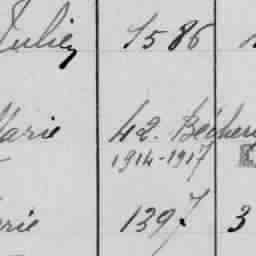 Julien 1586
Marie 42. Bécher
1914-1917
rie 1397 3